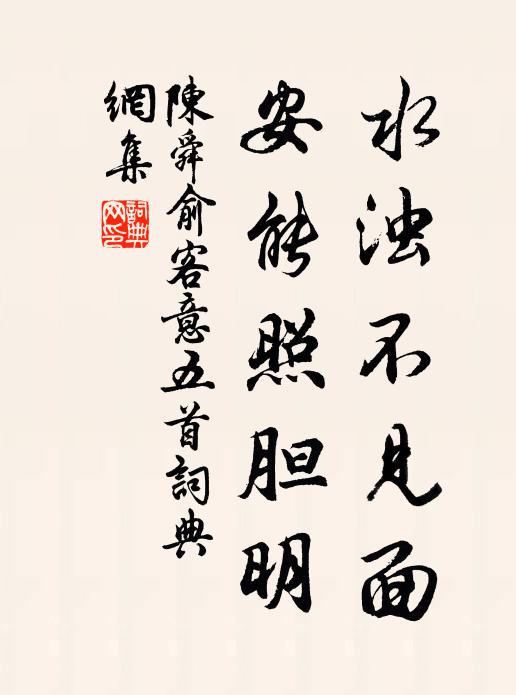 水浊不见面
安能照胆明
陳舜俞客意五首詞典
網集
詞典
网印